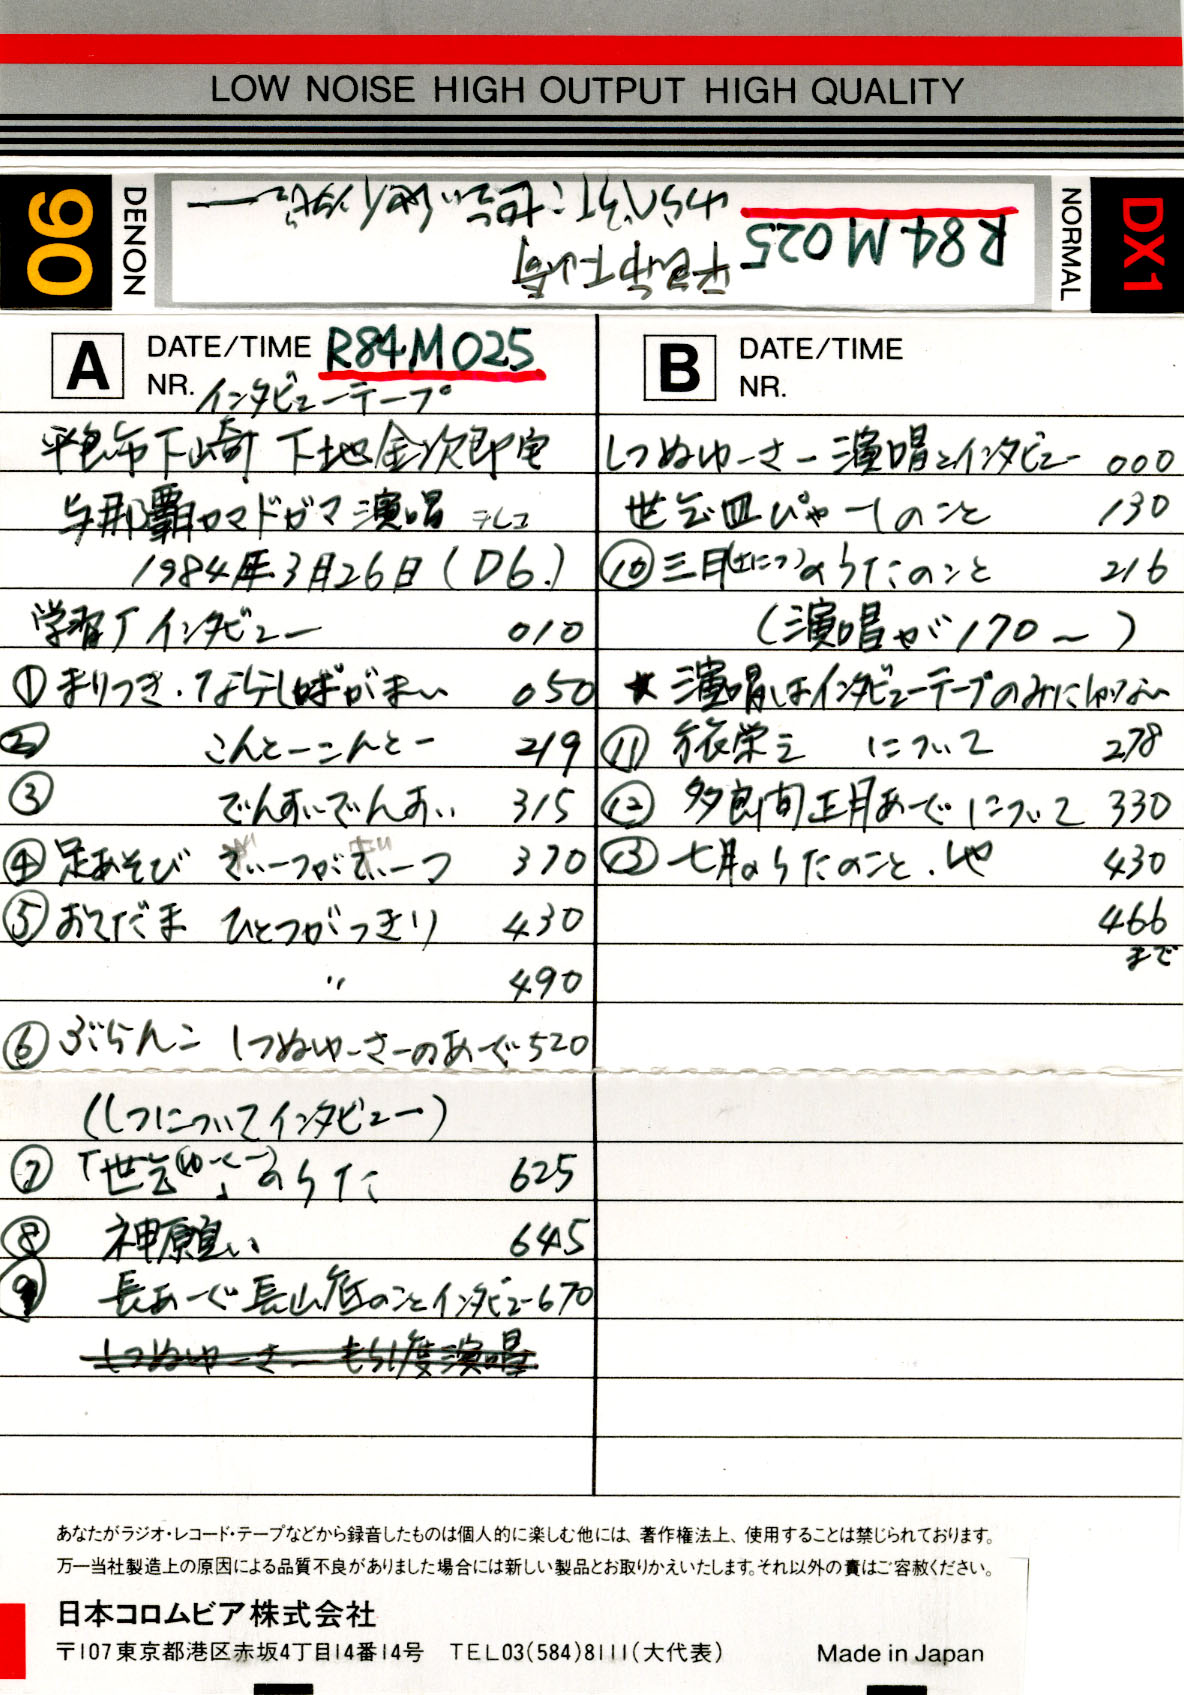 LOW NOISE HIGH OUTPUT HIGH QUALITY
90
DENON
平良市下崎
R84M025
わらべうた・世乞い他インタビュー
NORMAL
DX1
A DATE/TIME R84M025
NR. インタビューテープ
平良市下崎 下地金次郎宅
与那覇カマドガマ演唱 テレコ
1984年3月26日(D6.)
学習Tインタビュー 010
①まりつき・ならしばがまぃ 050
② こんとーこんとー 219
③ でんあいでんあい 315
④足あそび ざぃーつがざぃーつ 370
⑤おてだま ひとつがっきり 430
〃 490
⑥ぶらんこ しつぬゆーさーのあーぐ520
(しつについてインタビュー)
⑦「世乞(ゆーくー)」のうた 625
⑧ 神願い 645
⑨ 長あーぐ 長山底のことインタビュー670
しつぬゆーさー もう1度演唱
B DATE/TIME
NR.
しつぬゆーさー 演唱とインタビュー 000
世乞皿ぴゃーしのこと 130
⑩三月(さにつ)のうたのこと 216
(演唱が170〜)
★演唱はインタビューテープのみにしかない
⑪ 旅栄え について 278
⑫ 多良間正月あーぐについて 330
⑬ 七月のうたのこと. 430
466
まで
あなたがラジオ・レコード・テープなどから録音したものは個人的に楽しむ他には、著作権法上、使用することは禁じられております。
万一当社製造上の原因による品質不良がありました場合には新しい製品とお取りかえいたします。それ以外の責はご容赦ください。
日本コロムビア株式会社
〒107東京都港区赤坂4丁目14番14号 TEL03(584)8111(大代表) Made in Japan